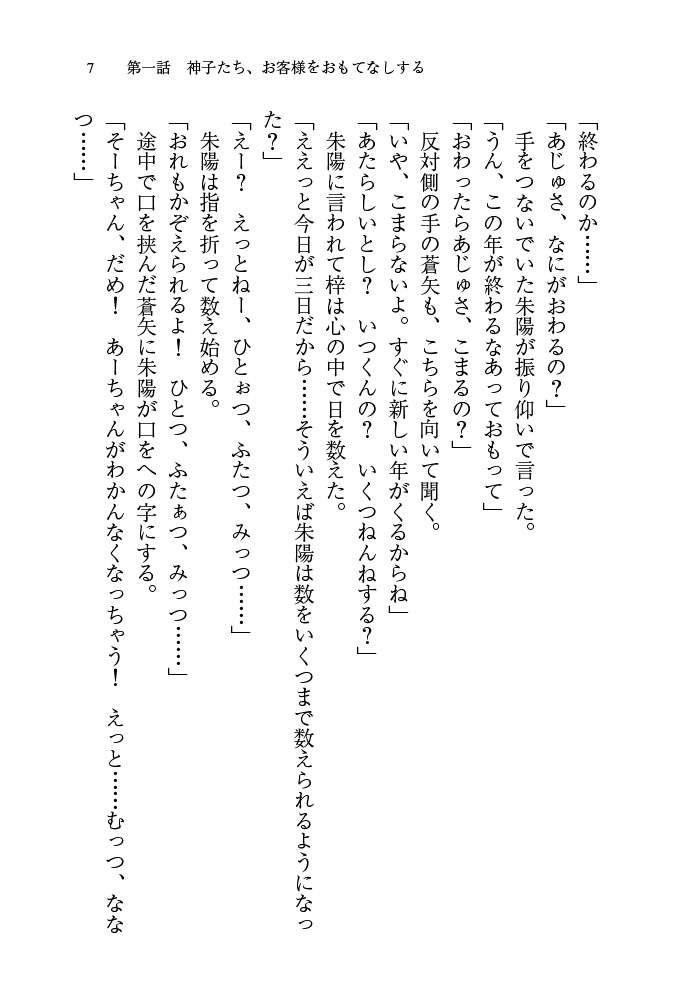 7　第一話　神子たち、お客様をおもてなしする
「終わるのか……」
「あじゅさ、なにがおわるの？」
　手をつないでいた朱陽が振り仰いで言った。
「うん、この年が終わるなあっておもって」
「おわったらあじゅさ、こまるの？」
　反対側の手の蒼矢も、こちらを向いて聞く。
「いや、こまらないよ。すぐに新しい年がくるからね」
「あたらしいとし？　いつくんの？　いくつねんねする？」
　朱陽に言われて梓は心の中で日を数えた。
「ええっと今日が三日だから……そういえば朱陽は数をいくつまで数えられるようになっ
た？」
「えー？　えっとねー、ひとぉつ、ふたつ、みっつ……」
　朱陽は指を折って数え始める。
「おれもかぞえられるよ！　ひとつ、ふたぁつ、みっつ……」
　途中で口を挟んだ蒼矢に朱陽が口をへの字にする。
「そーちゃん、だめ！　あーちゃんがわかんなくなっちゃう！　えっと……むっつ、なな
つ……」